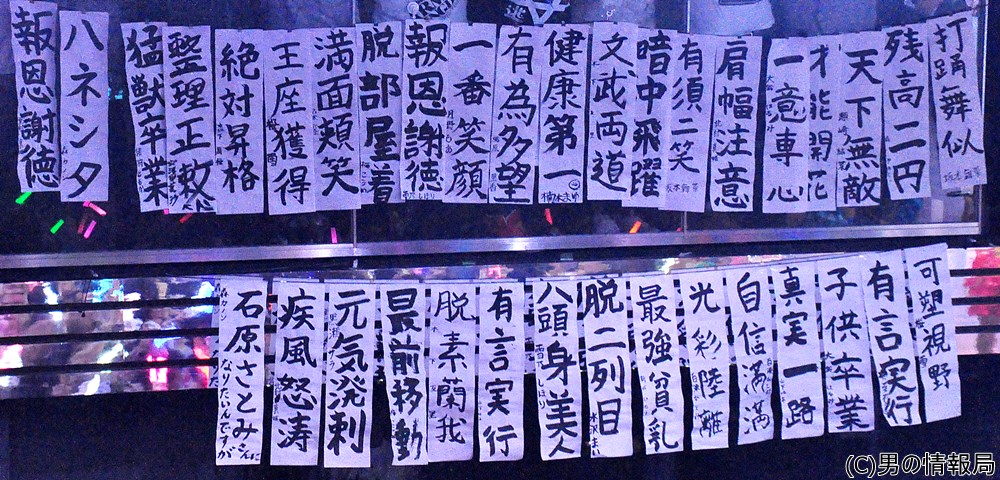 打踊舞似
残高二円
天下無敵
才能開花
一意専心
肩幅注意
有須二笑
暗中飛躍
文武両道
健康第一
有為多望
一番笑顔
報恩謝徳
脱部屋着
満面頬笑
王座獲得
絶対昇格
整理正敕
猛獣卒業
ハネシタ
報恩謝徳
可塑視野
有言実行
子供卒業
真実一路
自信満満
光彩陸離
最強貧乳
脱二列目
八頭身美人
有言実行
脱素蘭我
最前移動
元気溌剌
疾風怒涛
石原さとみさんに
なりたいんですが
(C)男の情報局